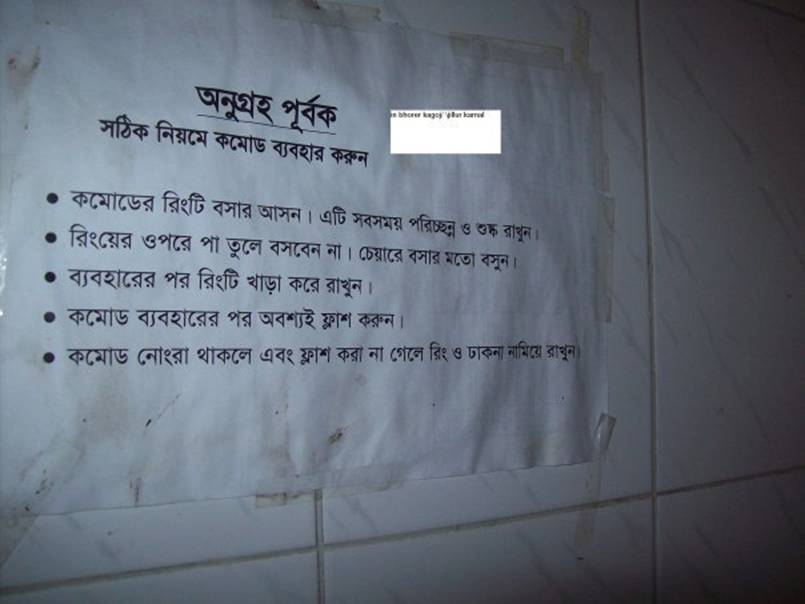 অনুগ্রহ পূর্বক
সঠিক নিয়মে কমোড ব্যবহার করুন
in bhorer kagoj
kamal
• কমোডের রিংটি বসার আসন। এটি সবসময় পরিচ্ছন্ন ও শুষ্ক রাখুন।
• রিংয়ের ওপরে পা তুলে বসবেন না। চেয়ারে বসার মতো বসুন।
• ব্যবহারের পর রিংটি খাড়া করে রাখুন।
• কমোড ব্যবহারের পর অবশ্যই ফ্লাশ করুন।
• কমোড নোংরা থাকলে এবং ফ্লাশ করা না গেলে রিং ও ঢাকনা নামিয়ে রাখুন।